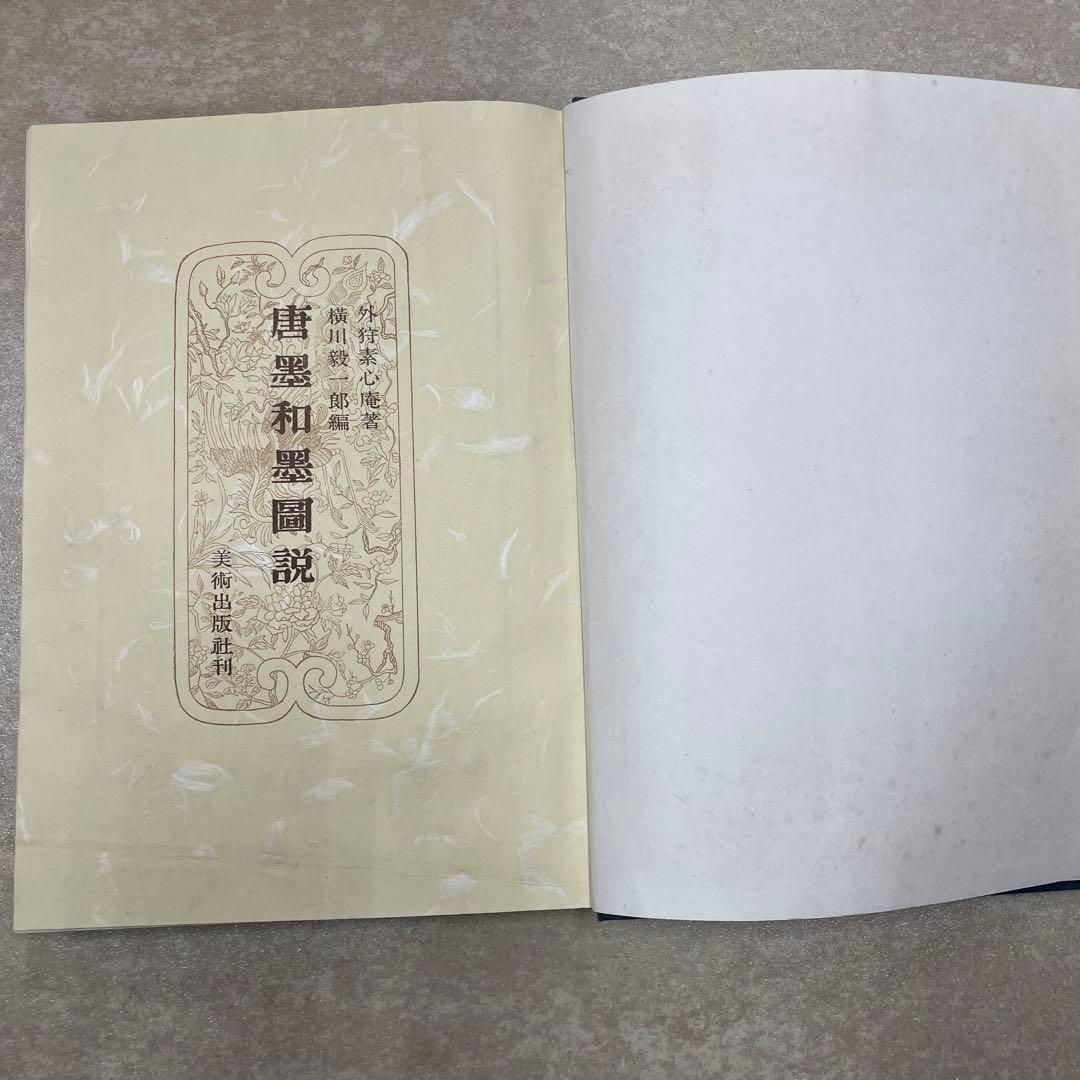 外狩素心庵著
横川毅一郎編
唐墨和墨圖説
美術出版社刊